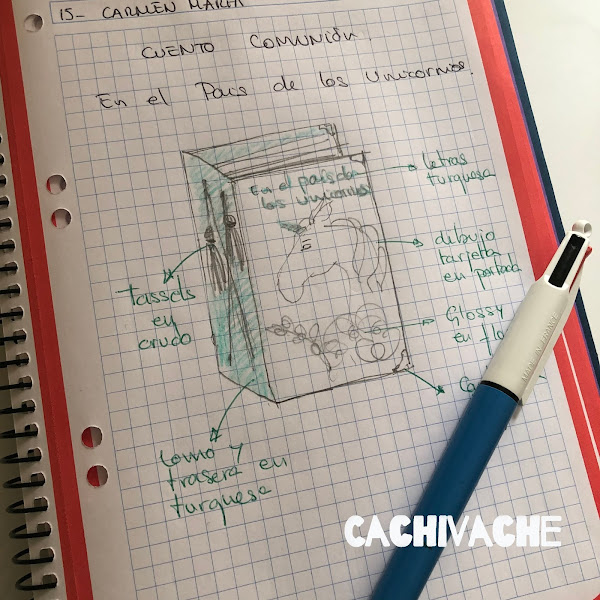 15- CARMEN MARÍA
CUENTO COMUNIÓN.
En el País de los Unicornios.
En el país de
los Unicornios
letras
turquesa
dibujo
tarjeta
en portada
tassels
en
crudo
Glossy
en
Lomo y
trasera en
turquesa
MADE IN FRANCE
CACHIVACHE